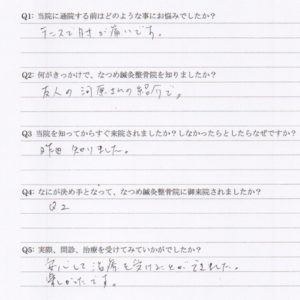 Q1: 当院に通院する前はどのような事にお悩みでしたか?
テニスで肘が痛いです。
Q2: 何がきっかけで、なつめ鍼灸整骨院を知りましたか?
友人の河原さんの紹介で。
Q3 当院を知ってからすぐ来院されましたか?しなかったらとしたらなぜですか?
昨日知りました。
Q4: なにが決め手となって、なつめ鍼灸整骨院に御来院されましたか?
Q2
Q5: 実際、問診、治療を受けてみていかがでしたか?
安心して治療を受けることができました。
楽しかったです。